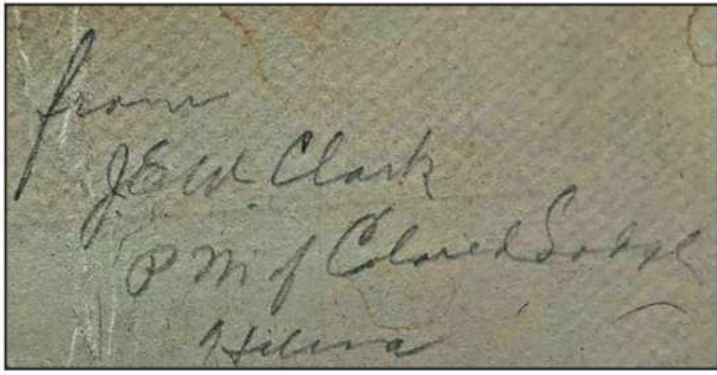 from
J E W Clark
P M of Colored Lodge
Helena